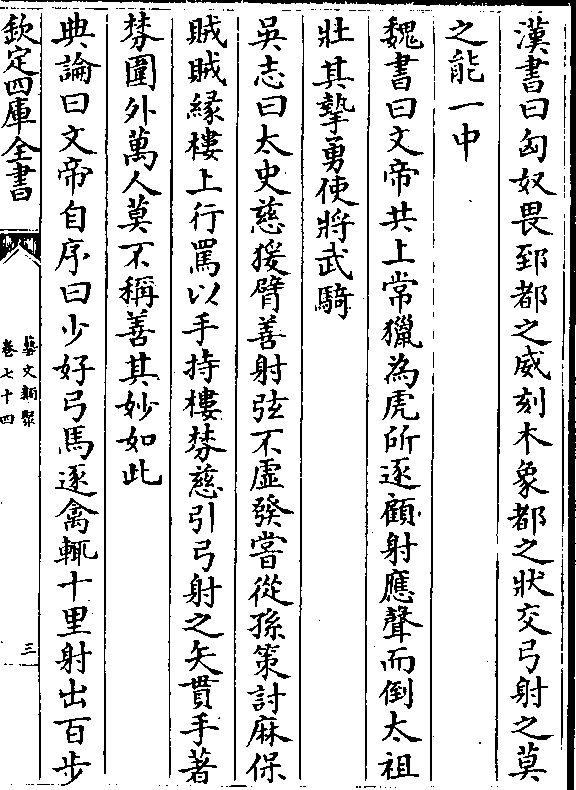 漢書曰匈奴畏郅都之威刻木象都之狀交弓射之莫
之能一中
魏書曰文帝共上常獵為虎所逐顧射應聲而倒太祖
壯其摯勇使將武騎
吳志曰太史慈援臂善射弦不虛發嘗從孫策討麻保
賊賊緣樓上行罵以手持樓棼慈引弓射之矢貫手著
棼圍外萬人莫不稱善其妙如此
典論曰文帝自序曰少好弓馬逐禽輒十里射出百步
欽定四庫全書
藝文類聚
卷七十四
三